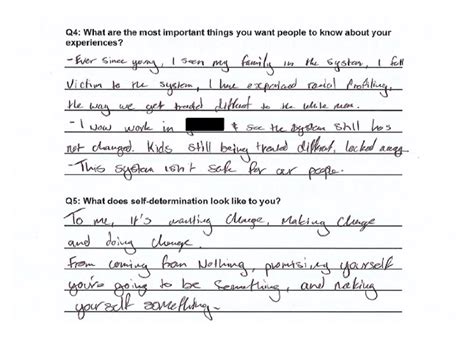 Q4: What are the most important things you want people to know about your
experiences?
- Ever since young, I seen my family in the system, I fell
Victim to the system, I have experienced racial Profiling,
the way we get treated different to the white man.
- I Now work in & see the system still has
not changed. Kids still being treated different, locked away
- This system isn't safe for our people.
Q5: What does self-determination look like to you?
To me, it's wanting Change, Making Change
and doing change.
From coming from Nothing, promising yourself
you're going to be Something, and making
yourself something.